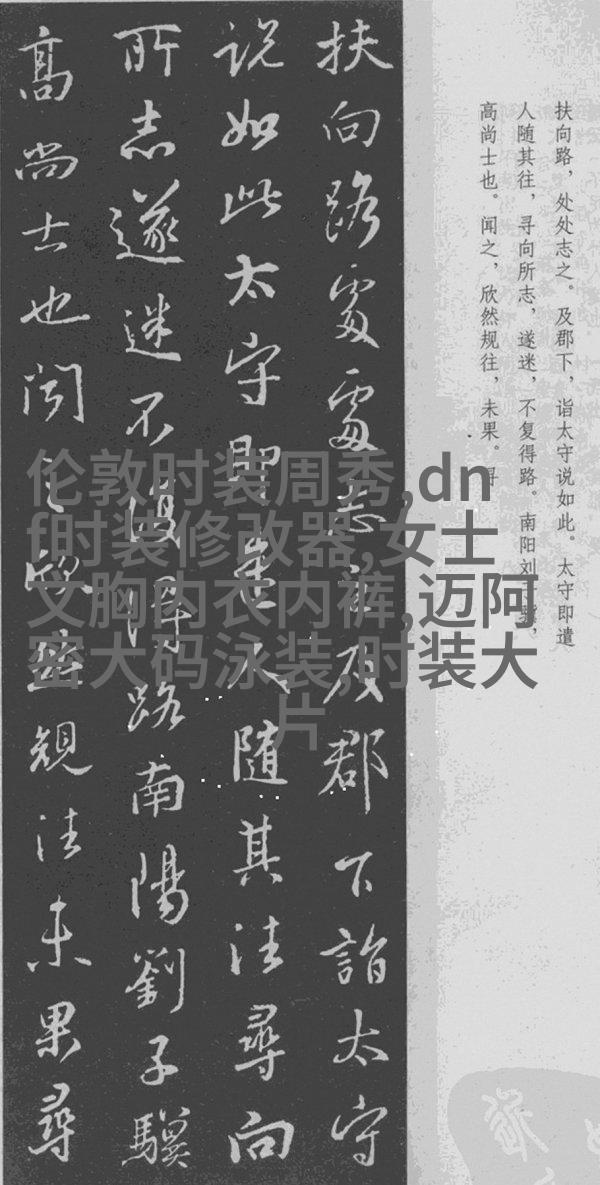 扶向路，处处志之。及郡下，诣太守说如此。太守即遣
人随其往，寻向所志，遂迷，不复得路。南阳刘子骥，
高尚士也。闻之，欣然规往，未果。寻
扶向路處處志之及郡下詣太守
說如此太守即遣人隨其往尋向
所志遂迷不復得路南陽劉子驥
高尚士也聞之欣然規往未果尋
伦敦时装周秀,dn
f时装修改器,女士
文胸内衣内裤,迈阿
密大码泳装,时装大
片